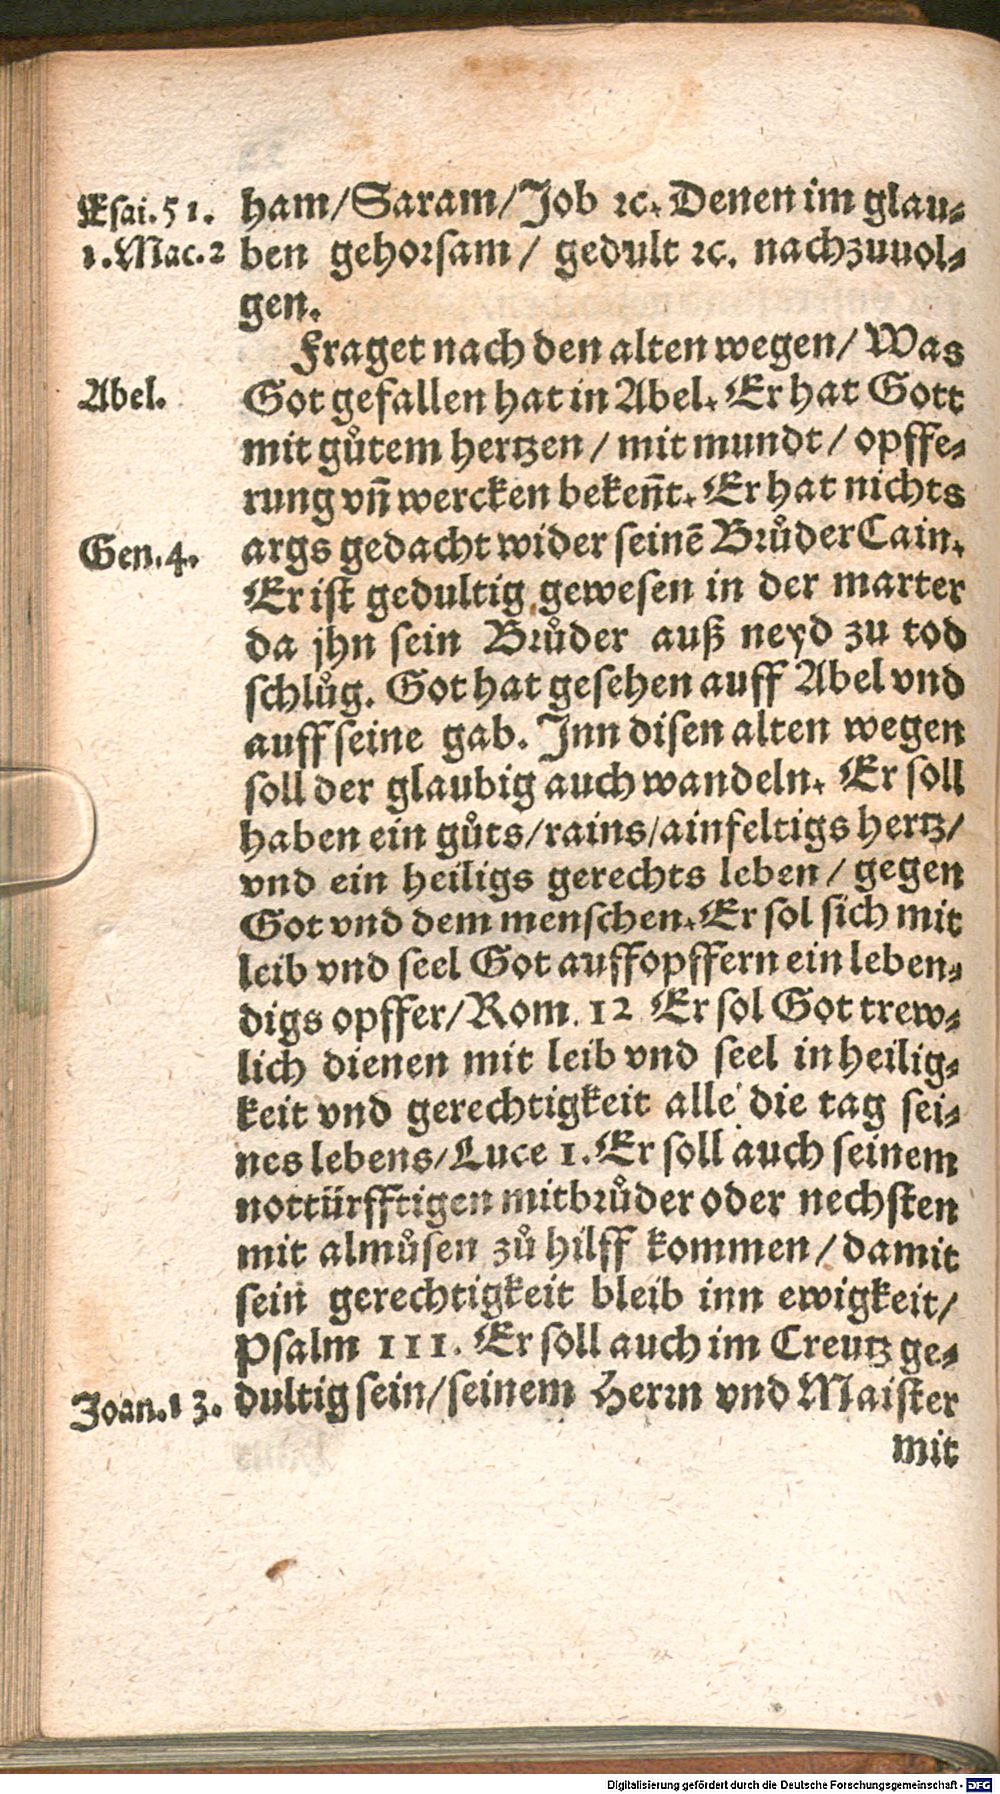 Esai.51. ham/Saram/Job ꝛc. Denen im glau⸗
1.Mac.2 ben gehorsam/ gedult ꝛc. nachzuuol⸗
gen.
Fraget nach den alten wegen/ Was
Abel. Got gefallen hat in Abel. Er hat Gott
mit gůtem hertzen/ mit mundt/ opffe⸗
rung vñ wercken bekeñt. Er hat nichts
Gen.4. args gedacht wider seinē Brůder Cain.
Er ist gedultig gewesen in der marter
da jhn sein Brůder auß neyd zu tod
schlůg. Got hat gesehen auff Abel vnd
auff seine gab. Inn disen alten wegen
soll der glaubig auch wandeln. Er soll
haben ein gůts/rains/ainfeltigs hertz/
vnd ein heiligs gerechts leben/ gegen
Got vnd dem menschen. Er sol sich mit
leib vnd seel Got auffopffern ein leben⸗
digs opffer/Rom. 12 Er sol Got trew⸗
lich dienen mit leib vnd seel in heilig⸗
keit vnd gerechtigkeit alle die tag sei⸗
nes lebens/Luce 1. Er soll auch seinem
nottürfftigen mitbrůder oder nechsten
mit almůsen zů hilff kommen/damit
sein gerechtigkeit bleib inn ewigkeit/
Psalm 111. Er soll auch im Creutz ge⸗
Joan.13. dultig sein/seinem Herrn vnd Maister
mit
Digitalisierung gefördert durch die Deutsche Forschungsgemeinschaft - DFG